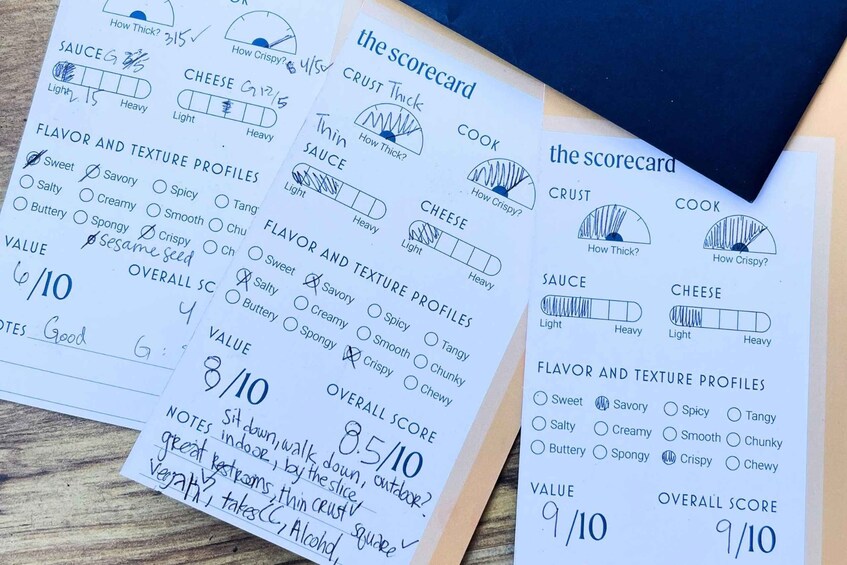 OK
How Thick?
3|5 ✓
How Crispy?
4/5 ✓
SAUCE G
CHEESE
Light
2 |5
Heavy
Light
Heavy
FLAVOR AND TEXTURE PROFILES
Sweet Savory Spicy Tang
Salty Creamy Smooth Chu
Buttery Spongy Crispy Ch
Sesame seed
VALUE
6/10
OVERALL SC
4
OTES Good
G:
the scorecard
CRUST Thick
COOK
How Thick?
How Crispy?
Thin
SAUCE
CHEESE
Light Heavy
Light Heavy
FLAVOR AND TEXTURE PROFILES
Sweet Savory Spicy Tangy
Salty Creamy Smooth Chunky
Buttery Spongy Crispy Chewy
VALUE
8/10
OVERALL SCORE
8.5/10
NOTES Sit down, walk down, outdoor?
indoor, by the slice,
great restrooms, thin crust ✓ square ✓
takes CC, Alcohol,
the scorecard
CRUST
COOK
How Thick?
How Crispy?
SAUCE
CHEESE
Light Heavy
Light Heavy
FLAVOR AND TEXTURE PROFILES
Sweet Savory Spicy Tangy
Salty Creamy Smooth Chunky
Buttery Spongy Crispy Chewy
VALUE
9/10
OVERALL SCORE
9/10